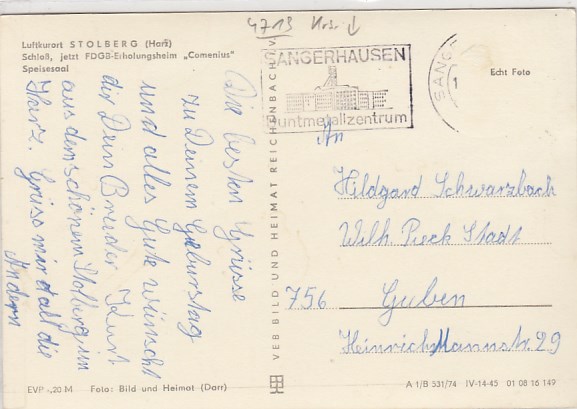 4713
Luftkurort STOLBERG (Harz)
Schloß, jetzt FDGB-Erholungsheim „Comenius"
Speisesaal
SANGERHAUSEN
Buntmetallzentrum
SANG
1
Echt Foto
Die besten Grüsse
zu Deinem Geburtstag
und alles Gute wünscht
dir Dein Brueder Kurt
aus den schönen Stolberg im
Harz. Grüss mir all die
Andern
VEB BILD UND HEIMAT REICHENBACH (V.
An
Hildgard Schwarzbach
Wilh. Pieck Stadt
756 Guben
Heinrich Mannstr. 29
EVP -,20 M Foto: Bild und Heimat (Darr)
A 1/B 531/74 IV-14-45 01 08 16 149